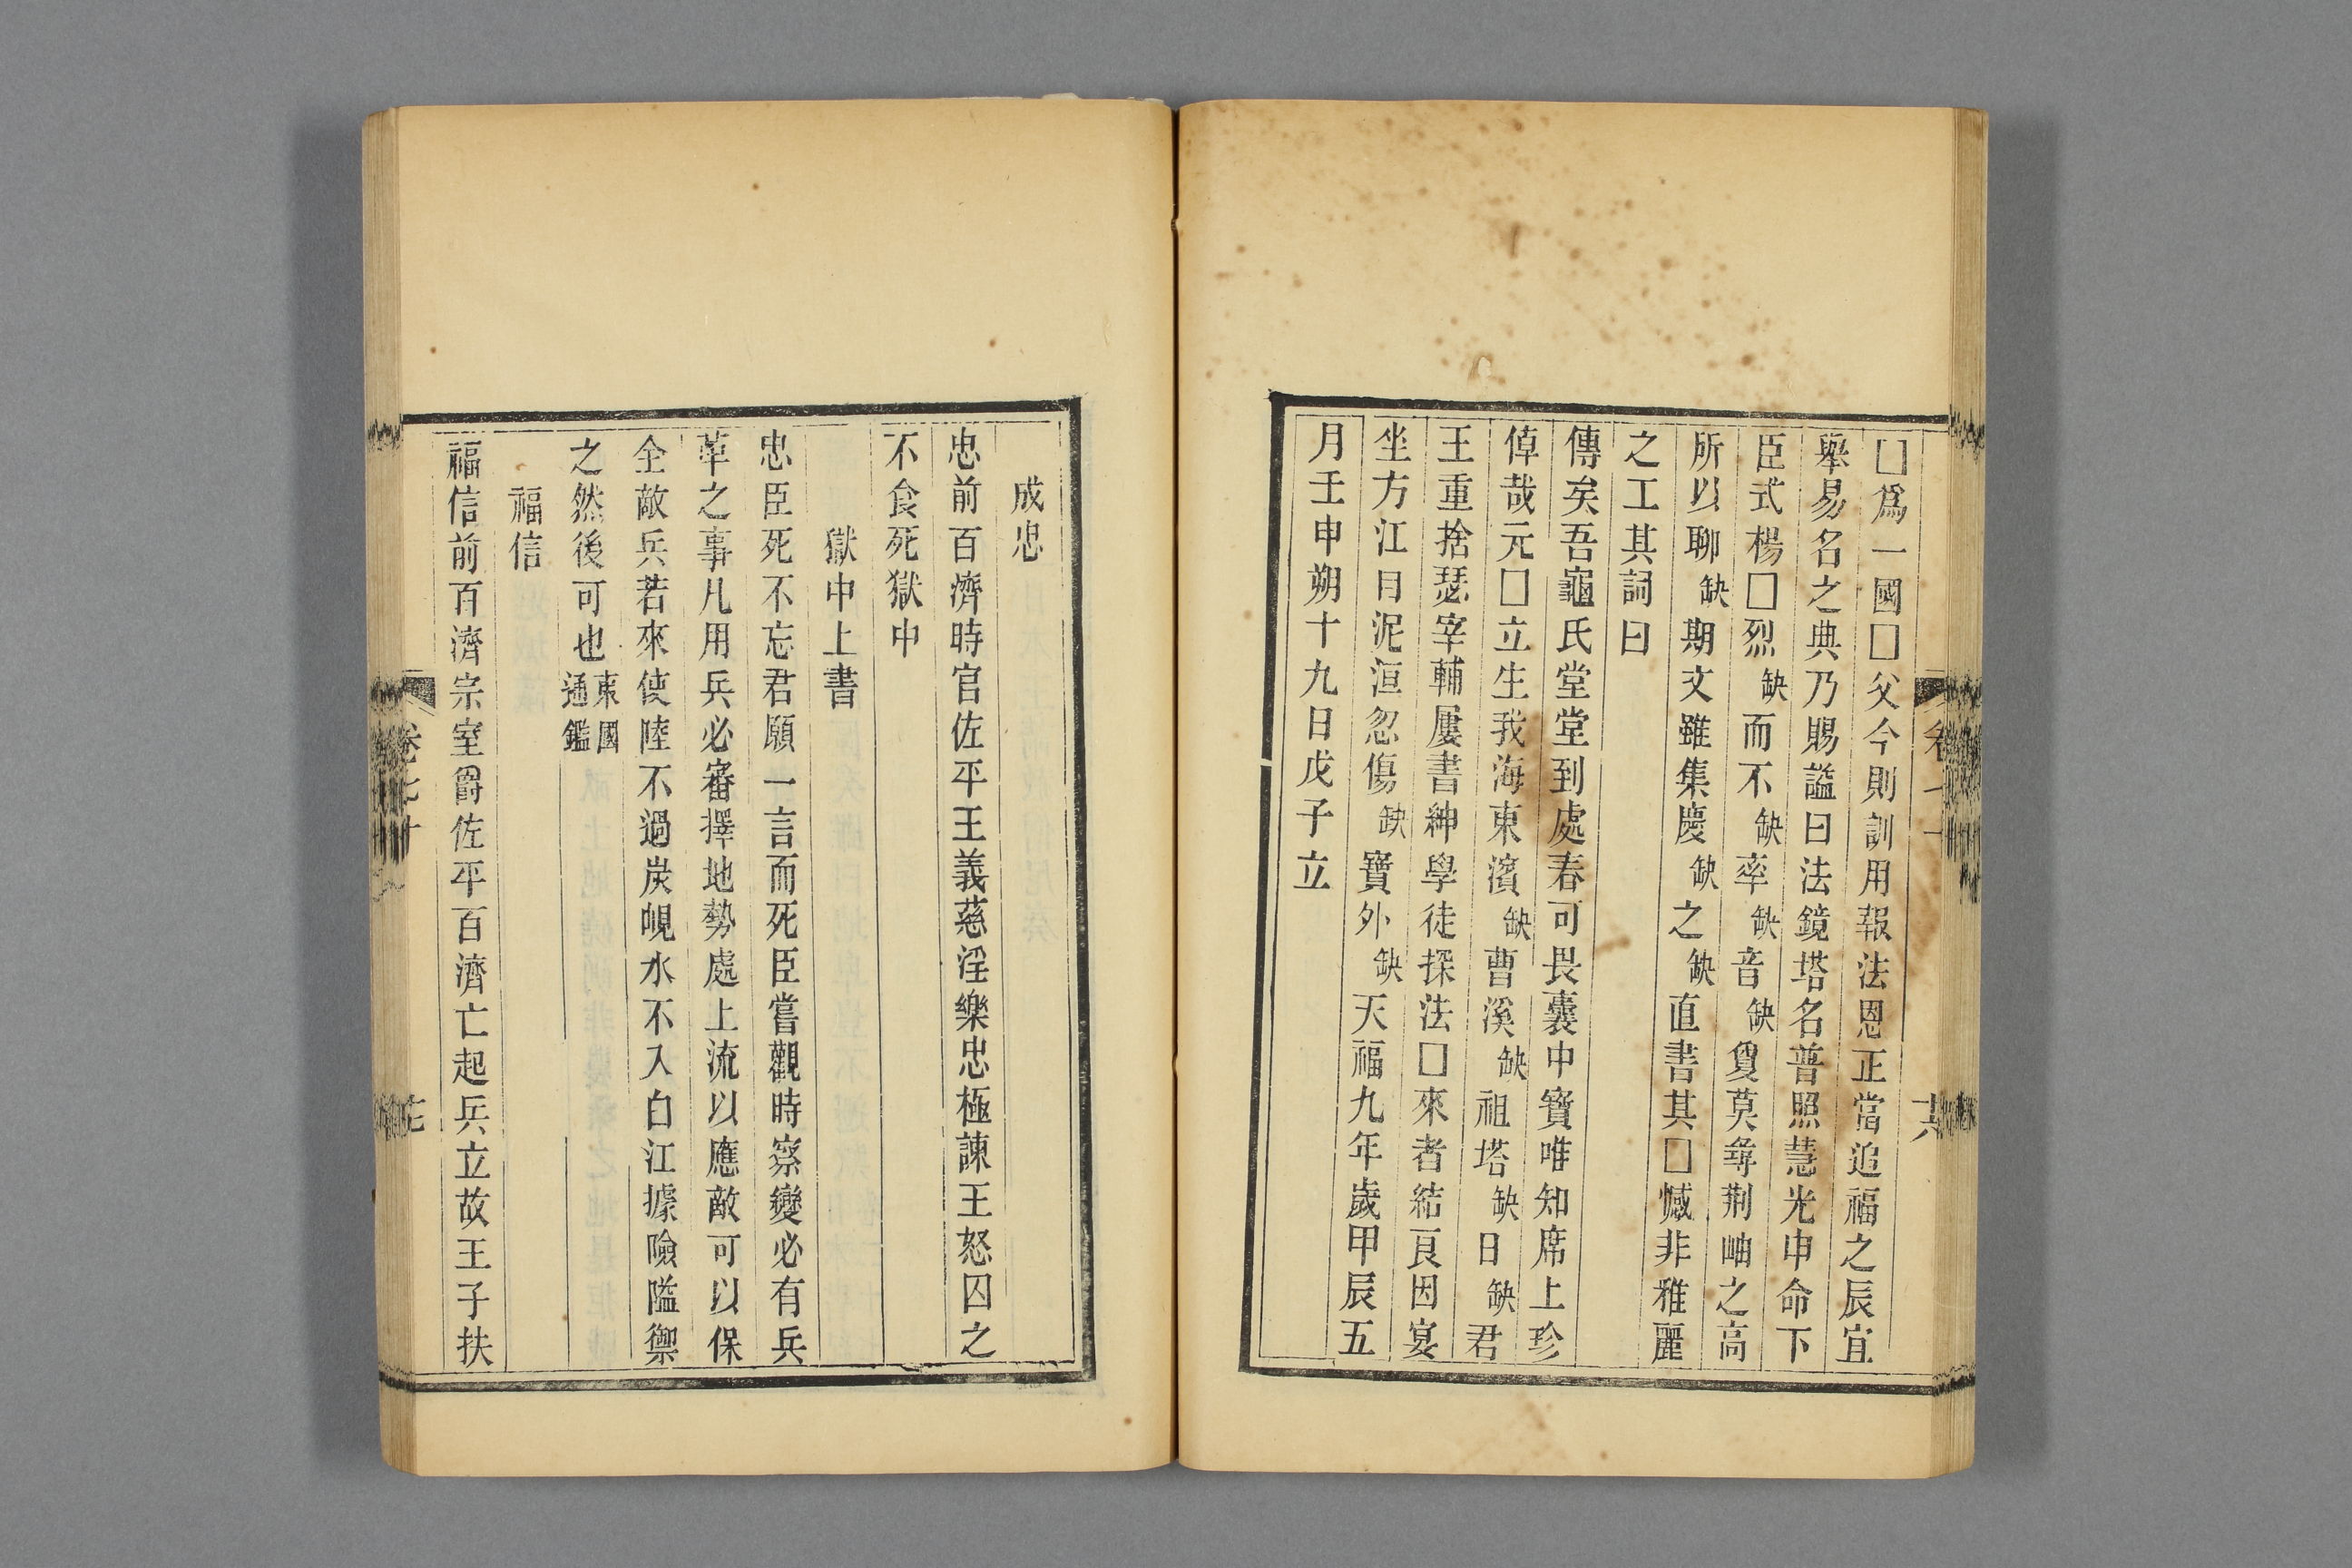 □爲一國□父今則訓用報法恩正當追福之辰宜
舉易名之典乃賜謚曰法鏡塔名普照慧光申命下
臣式楊□烈缺而不缺率缺音缺敻莫尋荆岫之高
所以聊缺期文雖集慶缺之缺直書其□憾非稚麗
之工其詞曰
傳矣吾龜氏堂堂到處春可畏囊中寶唯知席上珍
偉哉元□立生我海東濱缺曹溪缺祖塔缺日缺君
王重捨瑟宰輔屢書紳學徒探法□來者結良因宴
坐方江日泥洹忽傷缺寶外缺天福九年歲甲辰五
月壬申朔十九日戊子立
成忠
忠前百濟時官佐平王義慈淫樂忠極諫王怒囚之
不食死獄中
獄中上書
忠臣死不忘君願一言而死臣嘗觀時察變必有兵
革之事凡用兵必審擇地勢處上流以應敵可以保
全敵兵若來使陸不過炭峴水不入白江據險隘禦
之然後可也東國通鑑
福信
福信前百濟宗室爵佐平百濟亡起兵立故王子扶